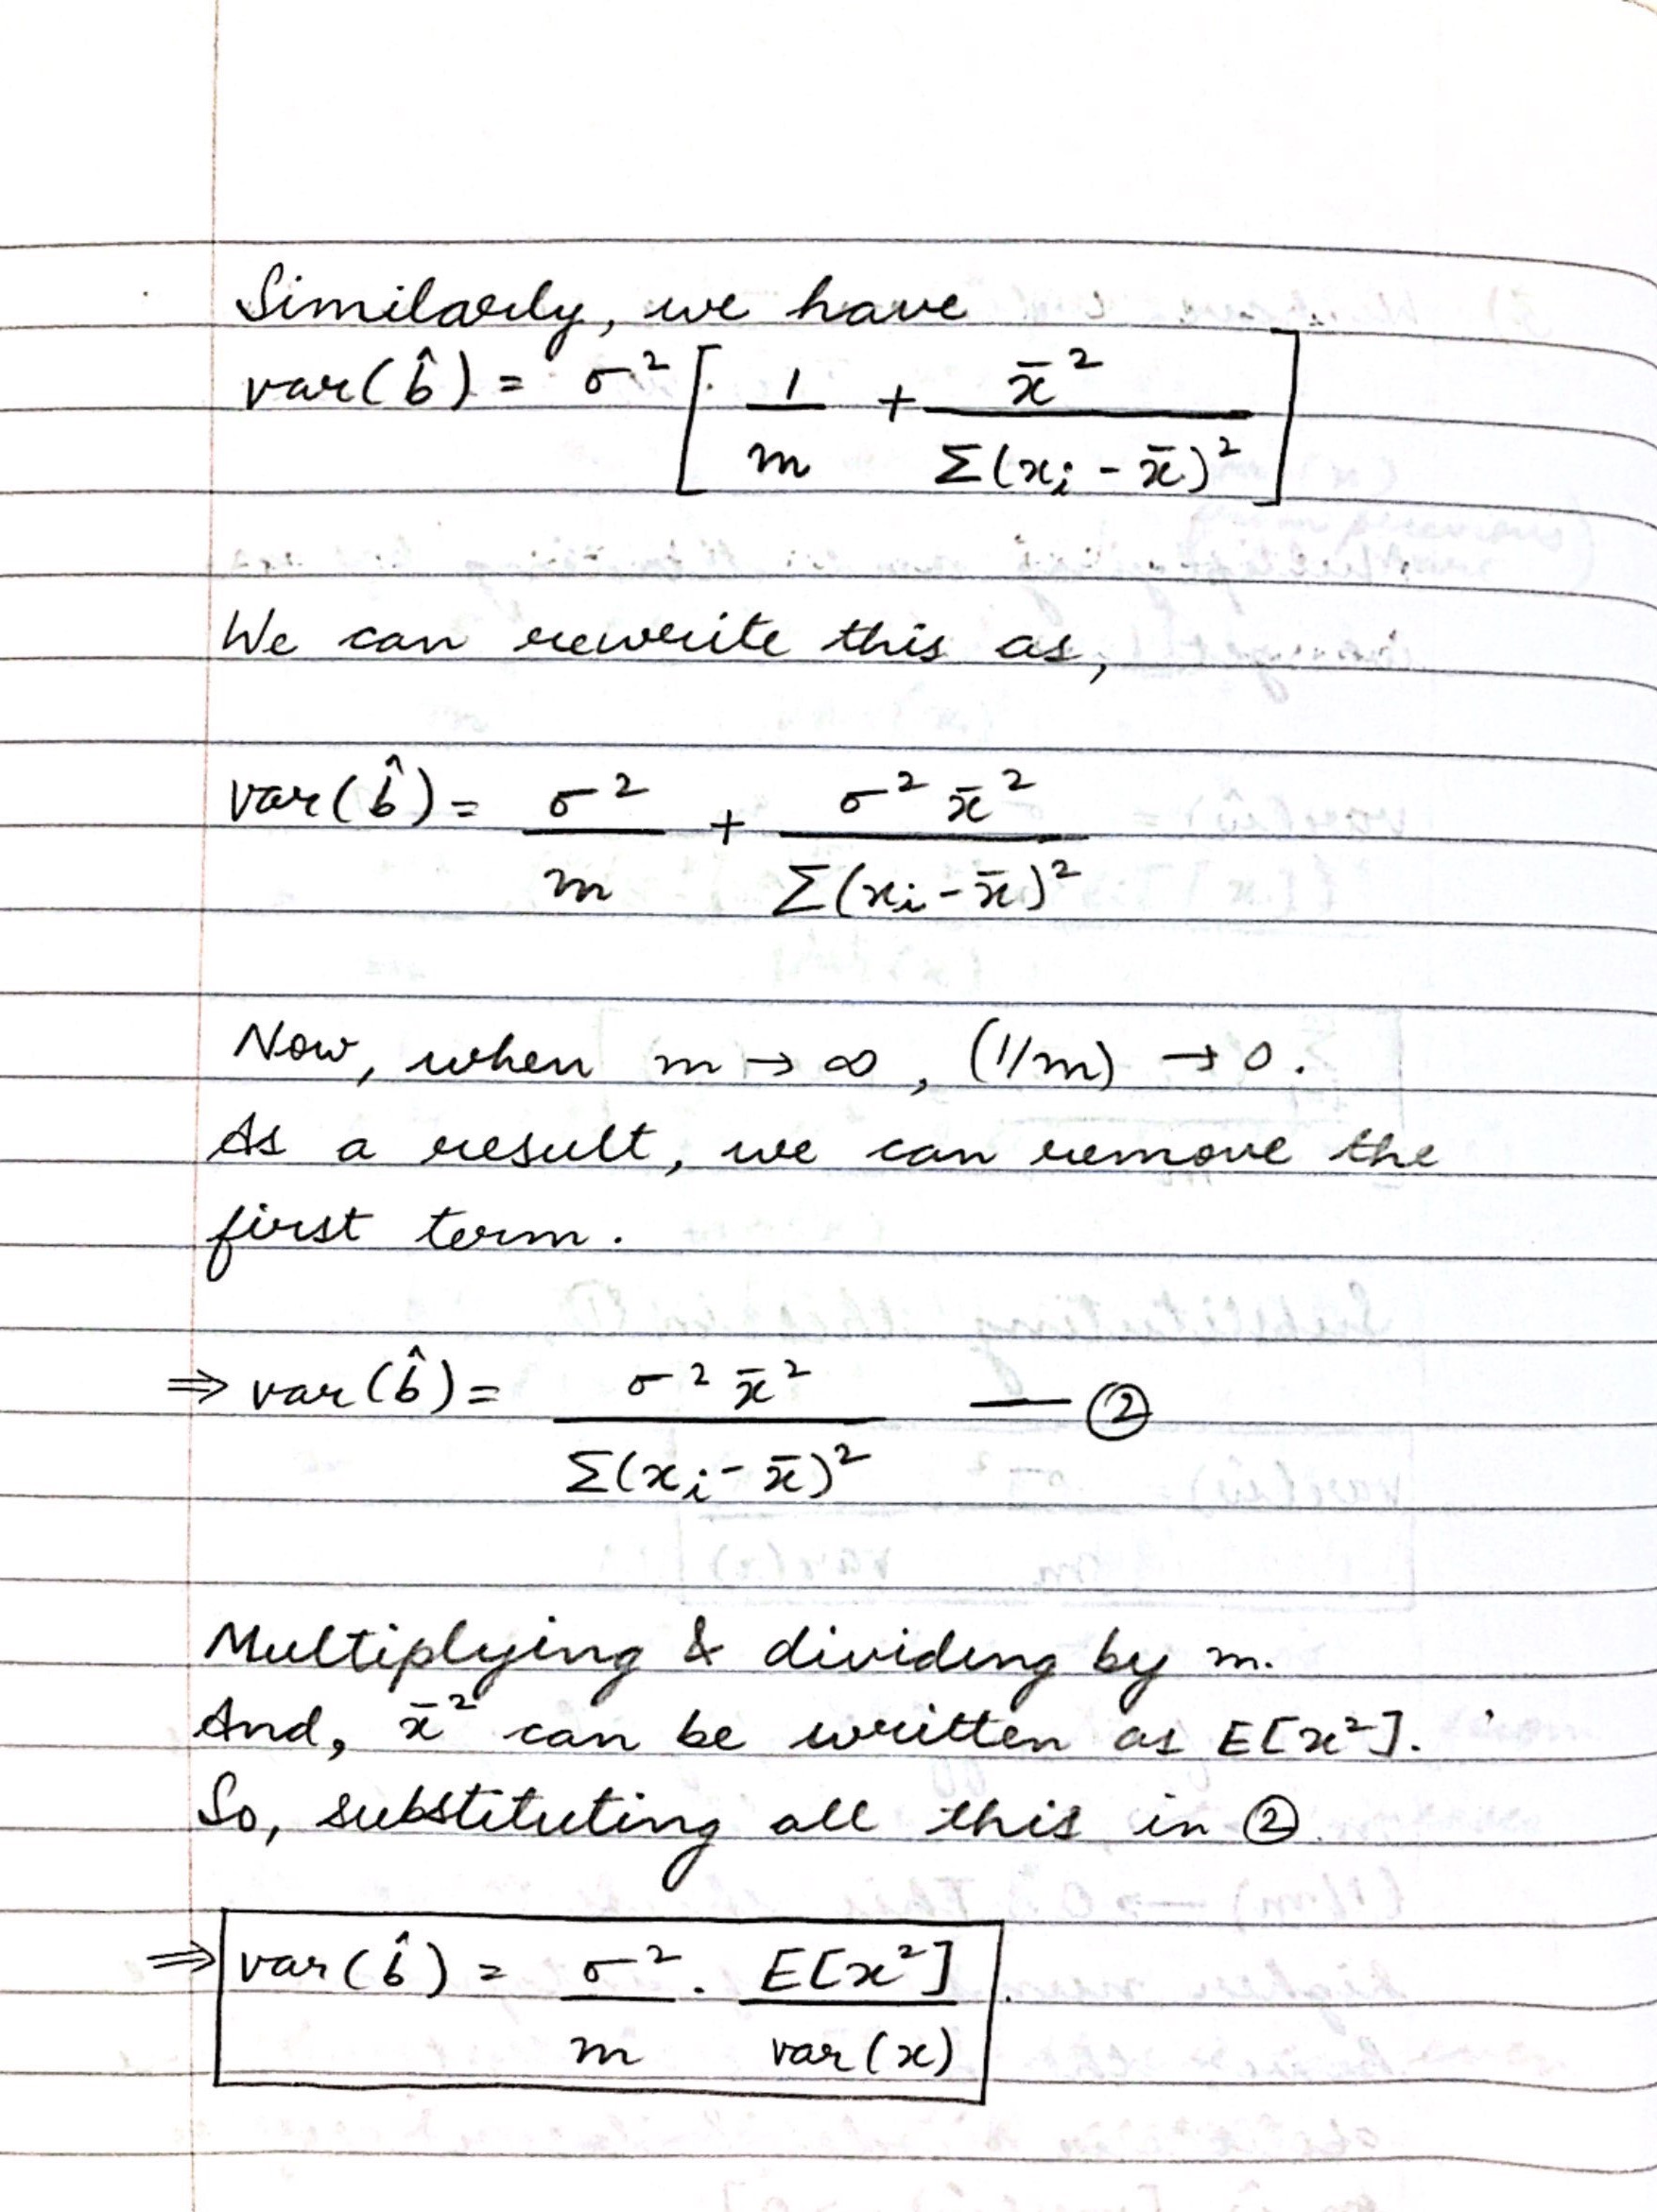 Similarly, we have
var(b̂) = σ² [ 1/m + x̄²/Σ(xᵢ - x̄)² ]
We can rewrite this as,
var(b̂) = σ²/m + σ² x̄²/Σ(xᵢ - x̄)²
Now, when m → ∞, (1/m) → 0.
As a result, we can remove the
first term.
⇒ var(b̂) = σ² x̄²/Σ(xᵢ - x̄)² — ②
Multiplying & dividing by m.
And, x̄² can be written as E[x²].
So, substituting all this in ②.
⇒ var(b̂) = σ²/m . E[x²]/var(x) .